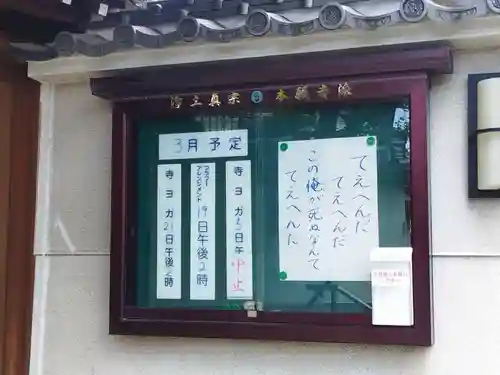 浄土真宗 本願寺派
てえへんだ
てえへんだ
この俺が死ぬなんて
てえへんだ
3月予定
寺ヨガ 日午 中止
フラワーアレンジメント 19日午後2時
寺ヨガ 21日午後 時